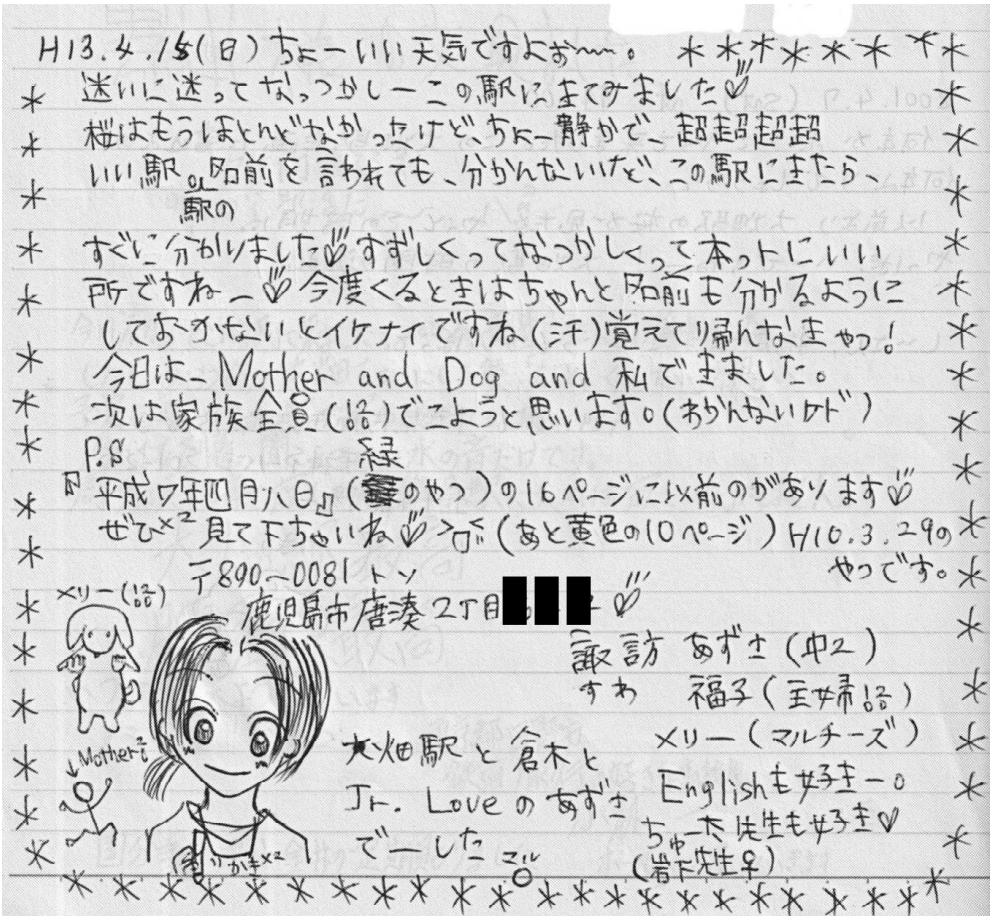 H13.4.15(日)ちょーいい天気ですよぉ〜〜。
迷いに迷ってなっつかしーこの駅に来てみました♡
桜はもうほとんどなかったけど、ちょー静かで、超超超超
いい駅。名前を言われても、分かんないけど、この駅にきたら、
駅の
すぐに分かりました♡すずしくってなつかしくって本ットにいい
所ですねー♡今度くるときはちゃんと名前も分かるように
しておかないとイケナイですね(汗)覚えて帰んなきゃっ!
今日は、Mother and Dog and 私できました。
次は家族全員(喜)でこようと思います。(わかんないケド)
P.S
緑
『平成7年四月八日』(のやつ)の16ページに以前のがあります♡
ぜひ×2 見て下ちゃいね♡(あと黄色の10ページ)H10.3.29の
やつです。
〒890-0081
鹿児島市唐湊2丁目
メリー
諏訪 あずさ(中2)
すわ 福子(主婦)
メリー(マルチーズ)
Mother
大畑駅と倉木と
Jr. Loveのあずさ
でした
Englishも好きー。
ちゅーた先生も好き♡
(岩下先生♀)